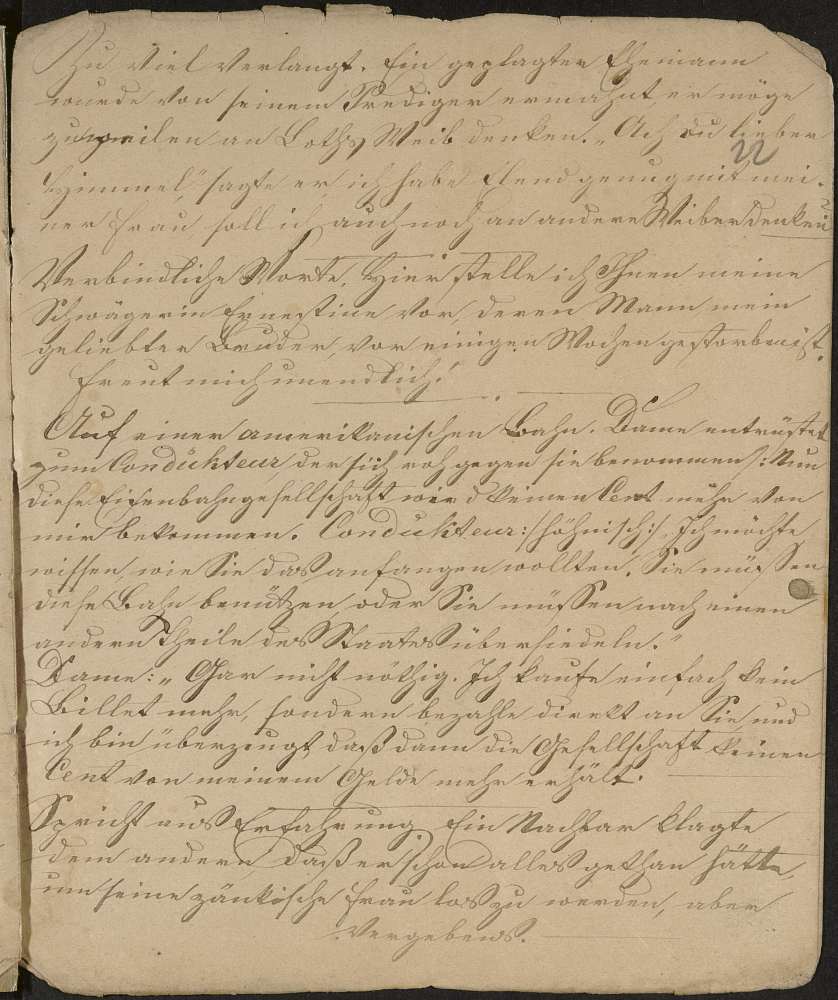 Zu viel verlangt. Ein geplagter Ehemann
wurde von seinem Prediger ermahnt, er möge
zuweilen an Loths Weib denken. „Ach du lieber
22
Himmel," sagte er, ich habe Elend genug mit mei-
ner Frau soll ich auch noch an andere Weiber denken?
Verbindliche Worte. Hier stelle ich Ihnen meine
Schwägerin Ernestine vor, deren Mann mein
geliebter Bruder, vor einigen Wochen gestorben ist.
Freut mich unendlich!
Auf einer amerikanischen Bahn. Dame entrüstet
zum Condukteur, der sich roh gegen sie benommen): Nun
diese Eisenbahngesellschaft wird keinen Cent mehr von
mir bekommen. Condukteur: /höhnisch:/ „Ich möchte
wissen, wie Sie das anfangen wollten. Sie müssen
diese Bahn benützen, oder Sie müssen nach einen
andern Theile des Staates übersiedeln."
Dame: „Gar nicht nöthig. Ich kaufe einfach kein
Billet mehr, sondern bezahle direkt an Sie und
ich bin überzeugt, daß dann die Gesellschaft keinen
Cent von meinem Gelde mehr erhält.
Spricht aus Erfahrung. Ein Nachbar klagte
dem andern daß er schon alles gethan hätte,
um seine zänkische Frau los zu werden, aber
vergebens.